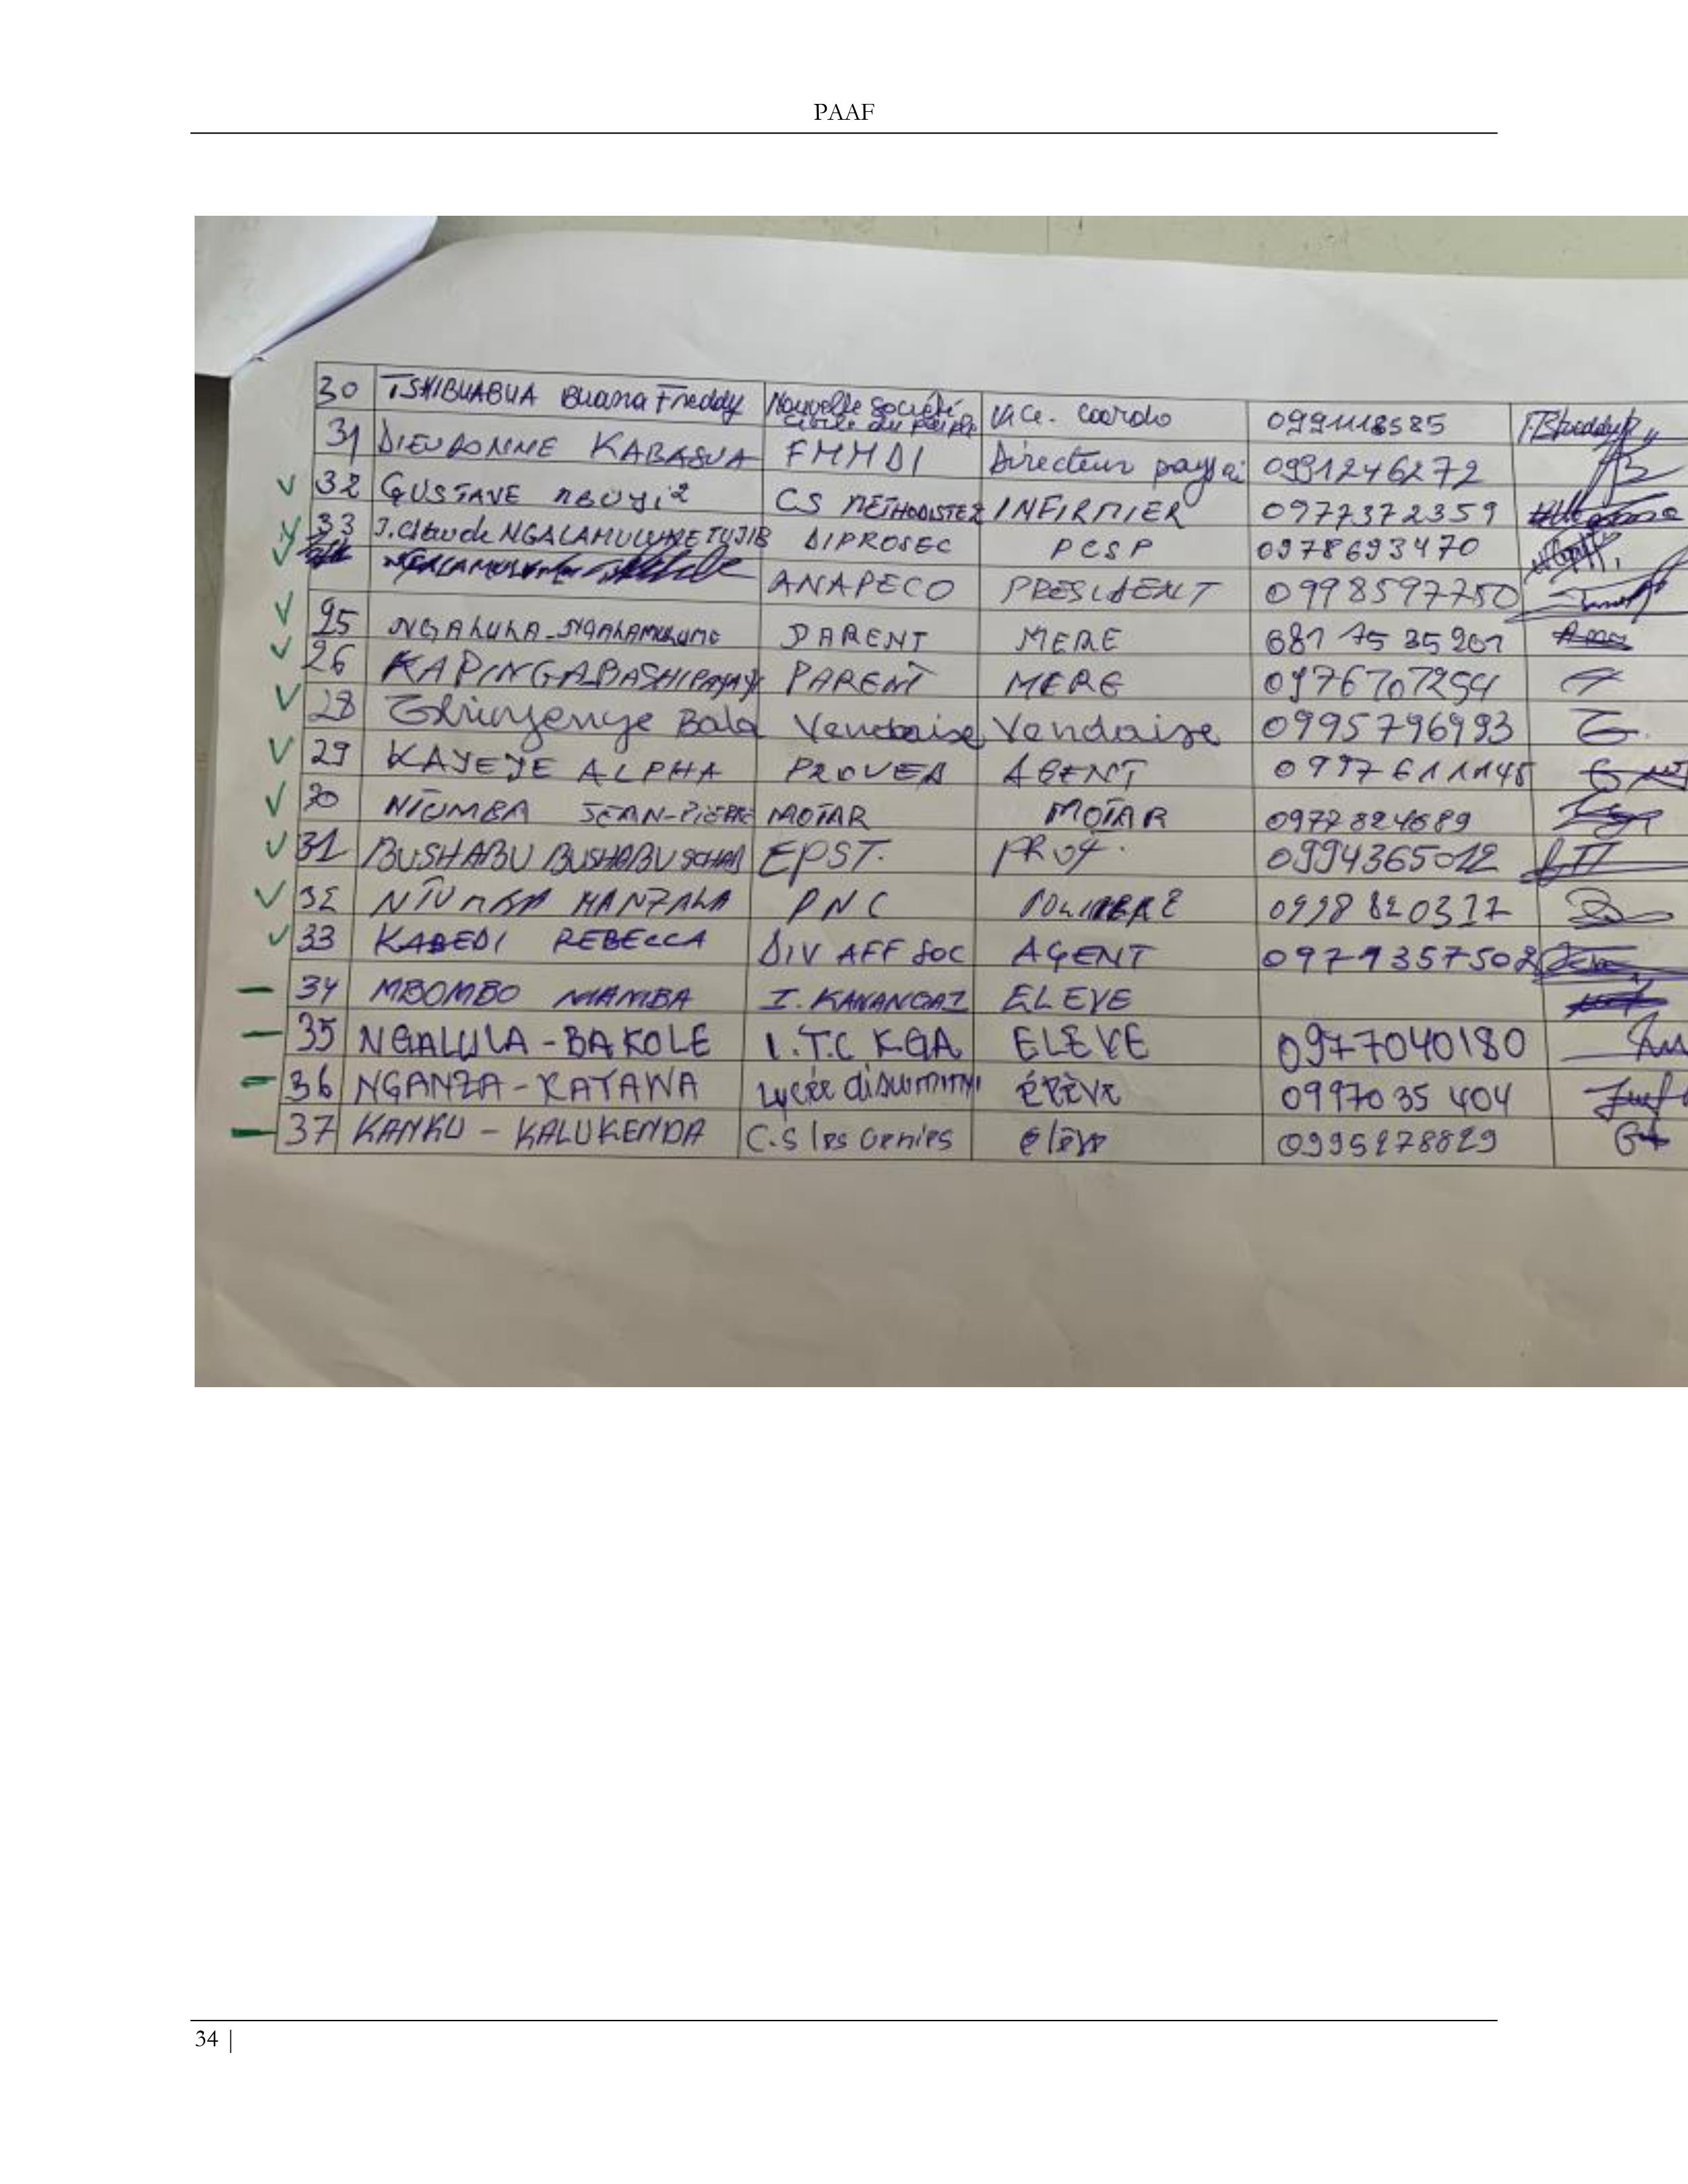 PAAF
30 TSHIBUABUA Buana Freddy Nouvelle Société civile du vice. coordo 0991118585
31 DIEUDONNE KABASUA FMMDI Directeur 0991246272
32 GUSTAVE MBUYI2 CS METHODISTE2 INFIRMIER 0977372359
33 J.Claude NGALAMULUME TUJIB DIPROSEC PCSP 0978693470
ANAPECO PRESIDENT 0998597750
25 NGALULA-NGALAMULUME PARENT MERE 081 75 35 201
26 KAPINGA PARENT MERE 0976707254
28 Bala Vendaise Vendaise 0995796993
29 KAYEYE ALPHA PROVED AGENT 0997611145
30 NTUMBA JEAN-PIERRE MOTAR MOTAR 0972824689
31 BUSHABU BUSHABU EPST. PROF. 0994365012
32 NTUMBA MANZALA PNC 0998820317
33 KABEDI REBECCA DIV AFF SOC AGENT 0979357502
34 MBOMBO MAMBA I. KANANGAI ELEVE
35 NGALULA-BAKOLE I.T.C KGA ELEVE 0977040180
36 NGANZA-KATAWA Lycée élève 0997035404
37 KANKU - KALUKENDA C.S les Genies élève 0995278829
34 |